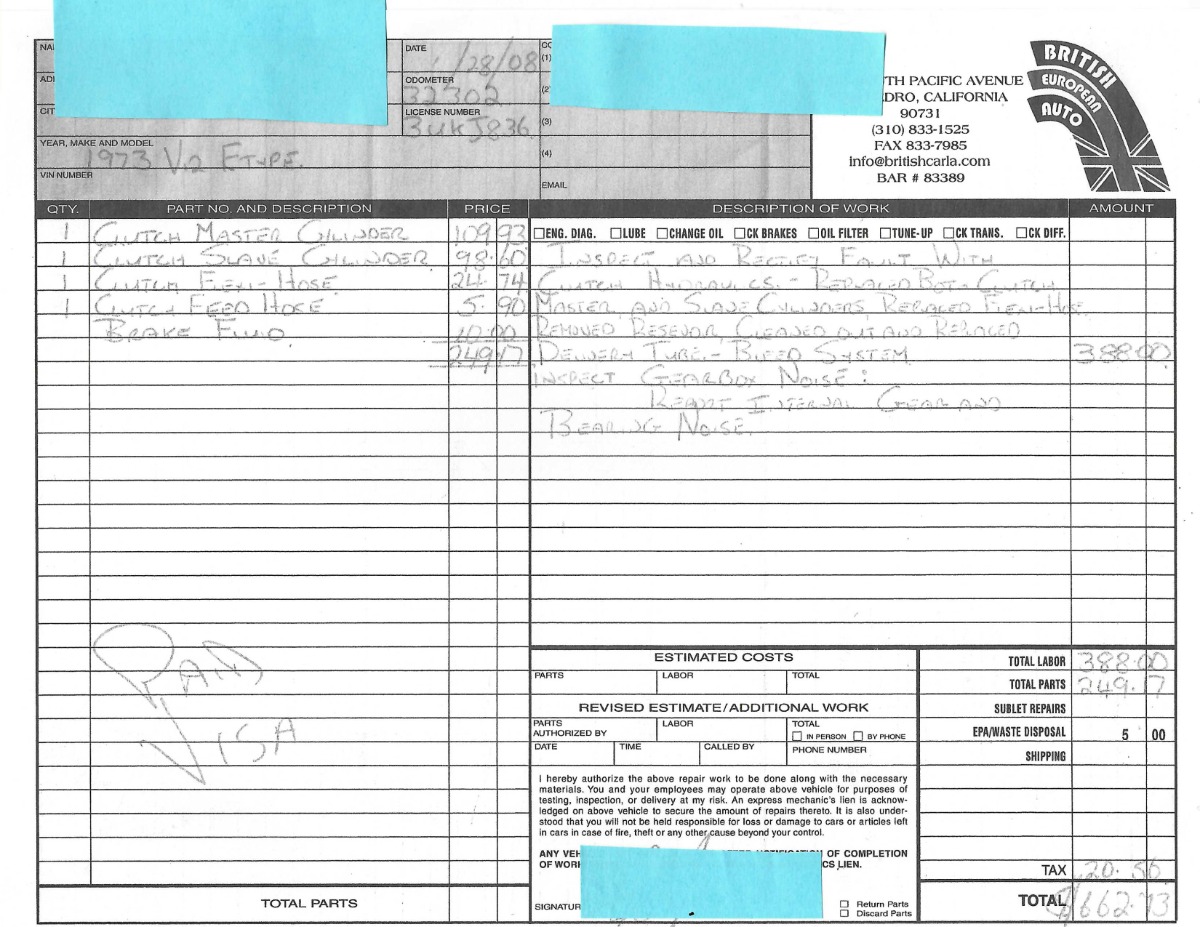 NA
DATE
1/28/08
AD
ODOMETER
32302
CIT
LICENSE NUMBER
3UKJ836
YEAR, MAKE AND MODEL
1973 V12 ETYPE.
VIN NUMBER
CO
(1)
(2)
(3)
(4)
EMAIL
TH PACIFIC AVENUE
DRO, CALIFORNIA
90731
(310) 833-1525
FAX 833-7985
info@britishcarla.com
BAR # 83389
BRITISH
EUROPEAN
AUTO
QTY. PART NO. AND DESCRIPTION PRICE DESCRIPTION OF WORK AMOUNT
☐ENG. DIAG. ☐LUBE ☐CHANGE OIL ☐CK BRAKES ☐OIL FILTER ☐TUNE-UP ☐CK TRANS. ☐CK DIFF.
1 CLUTCH MASTER CYLINDER 109 93
1 CLUTCH SLAVE CYLINDER 98·60 INSPECT AND RECTIFY FAULT WITH
1 CLUTCH FLEXI-HOSE 24·74 CLUTCH HYDRAULICS. - REPLACED BOTH CLUTCH
1 CLUTCH FEED HOSE 5·90 MASTER AND SLAVE CYLINDERS, REPLACED FLEXI-HOSE
BRAKE FLUID 10:00 REMOVED RESEVOIR, CLEANED OUT AND REPLACED
249·17 DELIVERY TUBE. - BLEED SYSTEM 388·00
INSPECT GEARBOX NOISE:
REPORT INTERNAL GEAR AND
BEARING NOISE.
PAID
VISA
ESTIMATED COSTS
PARTS LABOR TOTAL
REVISED ESTIMATE/ADDITIONAL WORK
PARTS LABOR TOTAL
AUTHORIZED BY ☐ IN PERSON ☐ BY PHONE
DATE TIME CALLED BY PHONE NUMBER
I hereby authorize the above repair work to be done along with the necessary
materials. You and your employees may operate above vehicle for purposes of
testing, inspection, or delivery at my risk. An express mechanic's lien is acknow-
ledged on above vehicle to secure the amount of repairs thereto. It is also under-
stood that you will not be held responsible for loss or damage to cars or articles left
in cars in case of fire, theft or any other cause beyond your control.
ANY VEH OF COMPLETION
OF WORK CS LIEN.
SIGNATUR
☐ Return Parts
☐ Discard Parts
TOTAL LABOR 388·00
TOTAL PARTS 249·17
SUBLET REPAIRS
EPA/WASTE DISPOSAL 5 00
SHIPPING
TAX 20·56
TOTAL $662·73
TOTAL PARTS